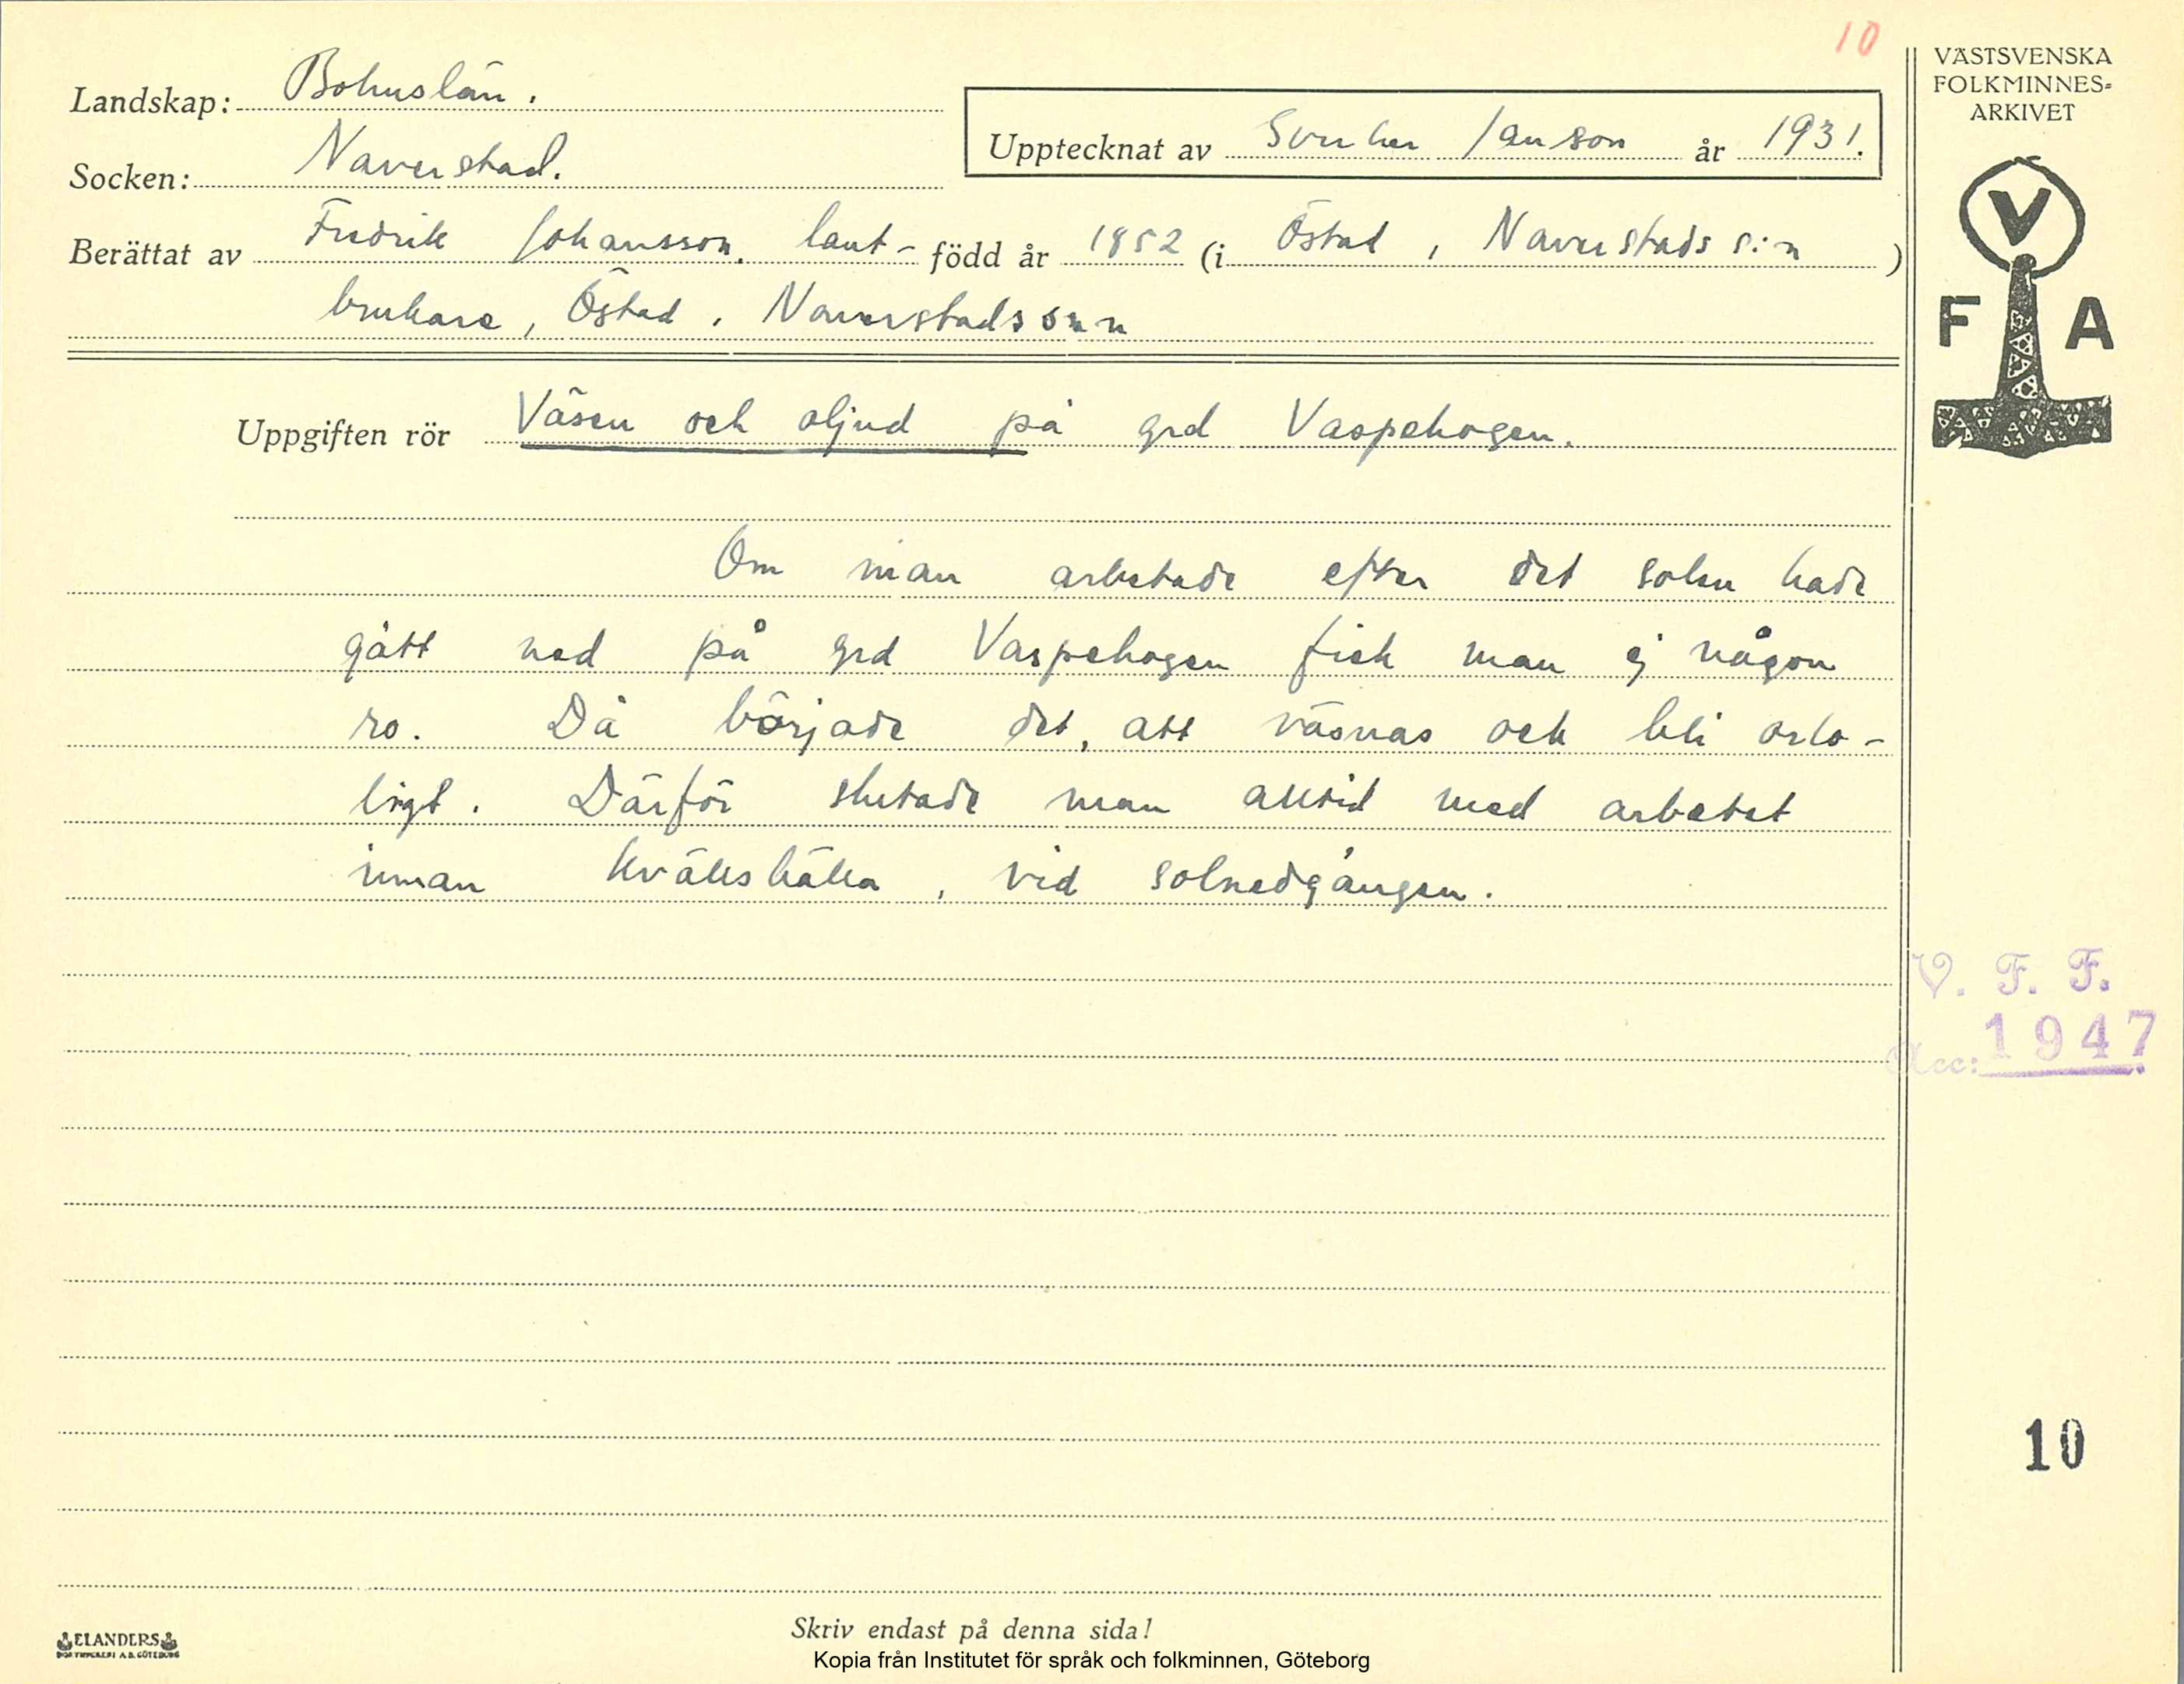 10
VÄSTSVENSKA
FOLKMINNES-
ARKIVET
Landskap: Bohuslän.
Upptecknat av Sverker Janson år 1931.
Socken: Naverstad.
Berättat av Fredrik Johansson, lant- född år 1852 (i Östad, Naverstads s:n)
brukare, Östad, Naverstads snn
V
F A
Uppgiften rör Väsen och oljud på grd Vaspehogen.
Om man arbetade efter det solen hade
gått ned på grd Vaspehogen fick man ej någon
ro. Då började det, att väsnas och bli oro-
ligt. Därför slutade man alltid med arbetet
innan kvällshälla, vid solnedgången.
V. F. F.
Acc: 1947
10
Skriv endast på denna sida!
ELANDERS
BOKTRYCKERI A.B. GÖTEBORG
Kopia från Institutet för språk och folkminnen, Göteborg